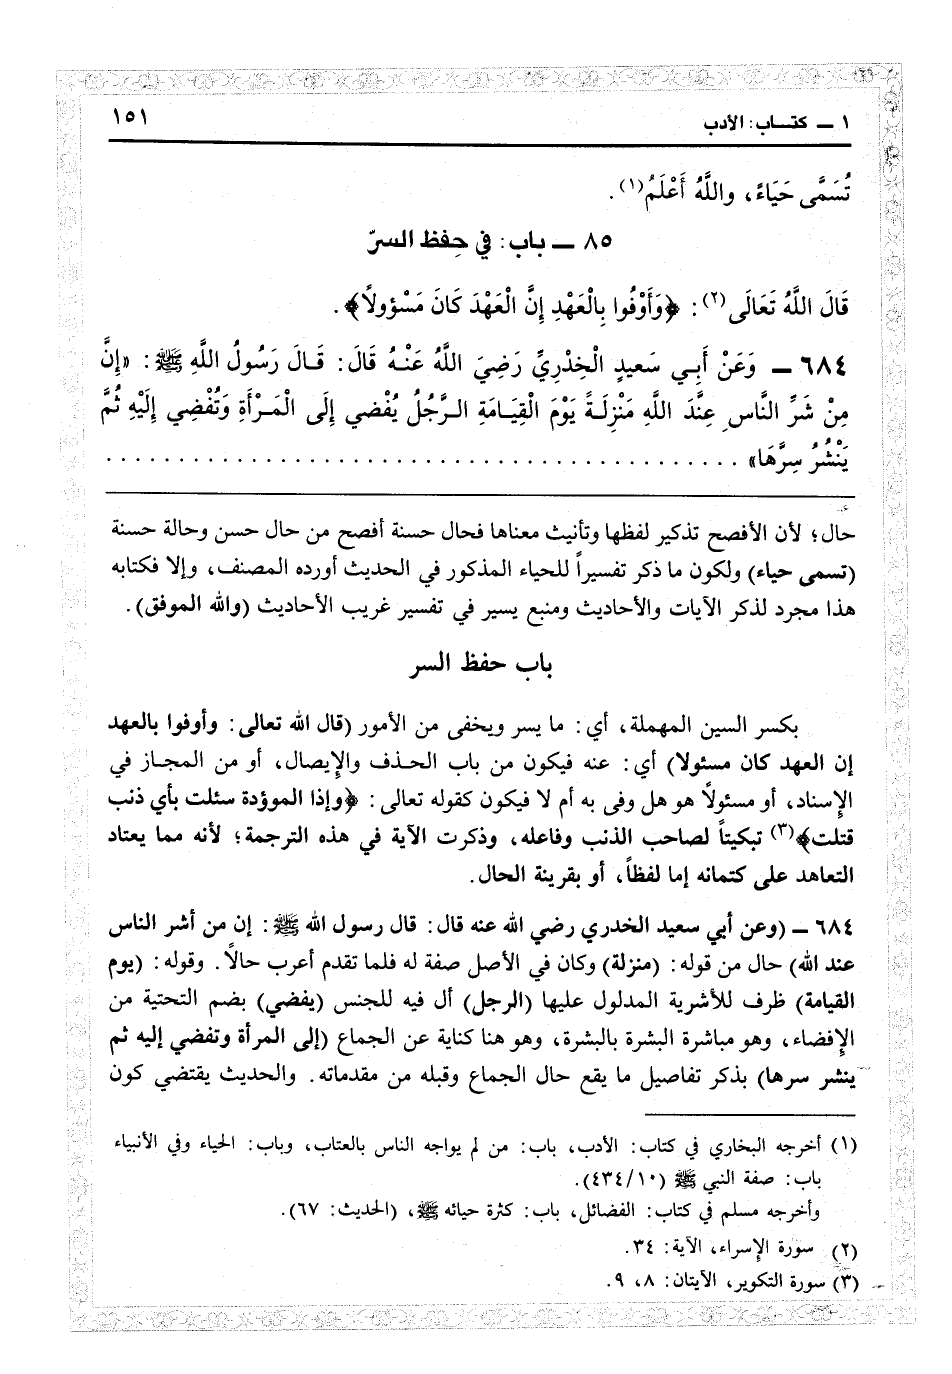 ١ ــ كتــاب: الأدب ١٥١
تُسَمَّى حَيَاءً، واللَّهُ أَعْلَمُ(١).
٨٥ ــ باب: في حِفظ السرّ
قَالَ اللَّهُ تَعَالَى(٢): ﴿وَأَوْفُوا بِالْعَهْدِ إِنَّ الْعَهْدَ كَانَ مَسْؤولًا﴾.
٦٨٤ ــ وَعَنْ أَبِـي سَعيدٍ الْخِذْرِيِّ رَضِيَ اللَّهُ عَنْـهُ قَالَ: قَـالَ رَسُولُ اللَّهِ ﷺ: «إِنَّ
مِنْ شَرِّ النَّاسِ عِنَّدَ اللَّهِ مَنْزِلَـةً يَوْمَ الْقِيَامَةِ الـرَّجُلُ يُفْضي إِلَى الْمَـرْأَةِ وَتُفْضِي إِلَيْهِ ثُمَّ
يَنْشُرُ سِرَّهَا» . . . . . . . . . . . . . . . . . . . . . . . . . . . . . . . . . . . . . . . . . . . .
حال؛ لأن الأفصح تذكير لفظها وتأنيث معناها فحال حسنة أفصح من حال حسن وحالة حسنة
(تسمى حياء) ولكون ما ذكر تفسيراً للحياء المذكور في الحديث أورده المصنف، وإلا فكتابه
هذا مجرد لذكر الآيات والأحاديث ومنبع يسير في تفسير غريب الأحاديث (والله الموفق).
باب حفظ السر
بكسر السين المهملة، أي: ما يسر ويخفى من الأمور (قال الله تعالى: وأوفوا بالعهد
إن العهد كان مسئولا) أي: عنه فيكون من باب الحـذف والإيصال، أو من المجـاز في
الإسناد، أو مسئولاً هو هل وفى به أم لا فيكون كقوله تعالى: ﴿وإذا الموؤدة سئلت بأي ذنب
قتلت﴾(٣) تبكيتاً لصاحب الذنب وفاعله، وذكرت الآية في هذه الترجمة؛ لأنه مما يعتاد
التعاهد على كتمانه إما لفظاً، أو بقرينة الحال.
٦٨٤ ــ (وعن أبي سعيد الخدري رضي الله عنه قال: قال رسول الله ﷺ: إن من أشر الناس
عند الله) حال من قوله: (منزلة) وكان في الأصل صفة له فلما تقدم أعرب حالاً. وقوله: (يوم
القيامة) ظرف للأشرية المدلول عليها (الرجل) أل فيه للجنس (يفضي) بضم التحتية من
الإفضاء، وهو مباشرة البشرة بالبشرة، وهو هنا كناية عن الجماع (إلى المرأة وتفضي إليه ثم
ينشر سرها) بذكر تفاصيل ما يقع حال الجماع وقبله من مقدماته. والحديث يقتضي كون
(١) أخرجه البخاري في كتاب: الأدب، باب: من لم يواجه الناس بالعتاب، وباب: الحياء وفي الأنبياء
باب: صفة النبي ﷺ (٤٣٤/١٠).
وأخرجه مسلم في كتاب: الفضائل، باب: كثرة حيائه ﷺ، (الحديث: ٦٧).
(٢) سورة الإسراء، الآية: ٣٤.
(٣) سورة التكوير، الآيتان: ٨، ٩.